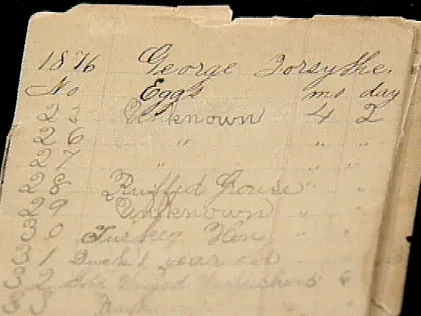 1876 George Forsythe.
No Eggs mt day
25 Unknown 4 2
26 " " "
27 " " "
28 Ruffed Grouse " "
29 Unknown " "
30 Turkey Hen " "
31 Duck 1 year old
32 Winged
33 Unknown